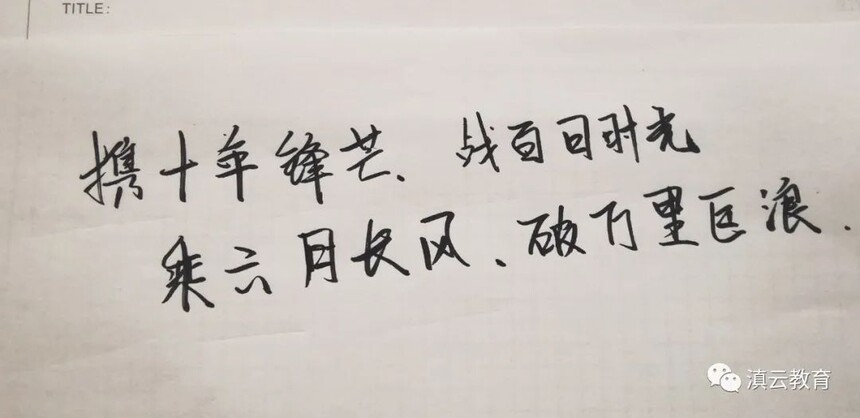 TITLE:
携十年锋芒、战百日时光
乘六月长风、破万里巨浪.
滇云教育